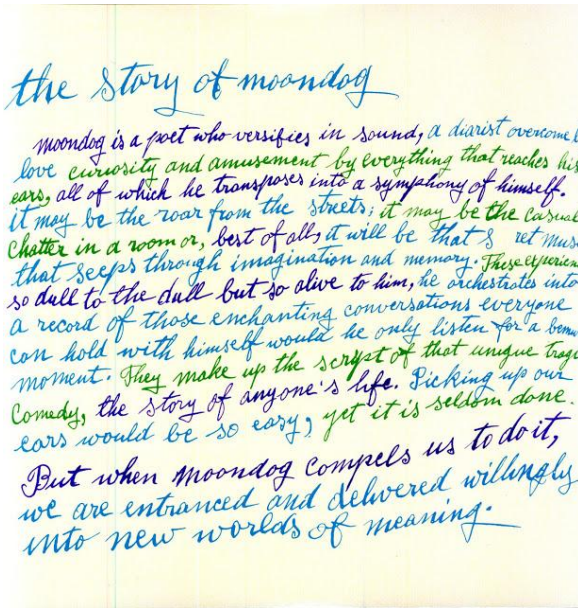 the story of moondog
moondog is a poet who versifies in sound, a diarist overcome b
love curiosity and amusement by everything that reaches his
ears, all of which he transposes into a symphony of himself.
it may be the roar from the streets; it may be the casual
chatter in a room or, best of all, it will be that s ret mus
that seeps through imagination and memory. These experien
so dull to the dull but so alive to him, he orchestrates into
a record of those enchanting conversations everyone
can hold with himself would he only listen for a bemu
moment. They make up the script of that unique tragi
Comedy, the story of anyone's life. Picking up our
ears would be so easy, yet it is seldom done.
But when moondog compels us to do it,
we are entranced and delivered willingly
into new worlds of meaning.